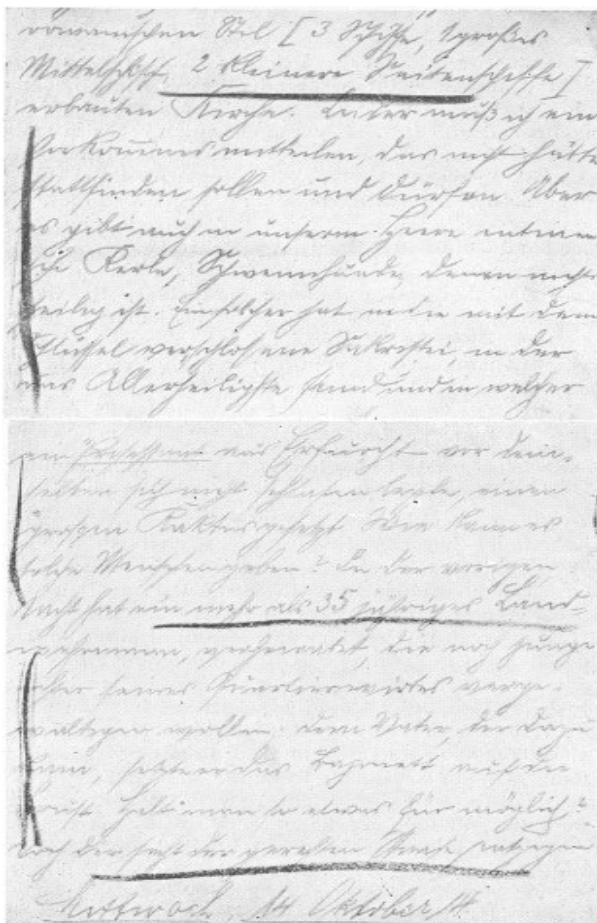 romanischen Stil [ 3 Schiffe, 1 großes
Mittelschiff, 2 kleinere Seitenschiffe ]
erbauten Kirche. Leider muß ich ein
Vorkommnis mitteilen, das nicht hätte
stattfinden sollen und dürfen. Aber
es gibt auch in unserm Heere
Kerle, Schweinehunde, denen nichts
heilig ist. Ein solcher hat in die mit dem
Schlüssel verschlossene Sakristei, in der
das Allerheiligste stand und in welcher
ein Protestant aus Ehrfurcht vor dem-
selben sich nicht schlafen legte, einen
großen Kaktus gesetzt. Wie kann es
solche Menschen geben? In der vorigen
Nacht hat ein mehr als 35 jähriger Land-
wehrmann, verheiratet, die noch junge
Tochter seines Quartierwirtes verge-
waltigen wollen. Dem Vater, der dazu
kam, setzte er das Bajonett auf die
Brust. Hält man so etwas für möglich?
Doch der
Mittwoch, 14 Oktober 14.